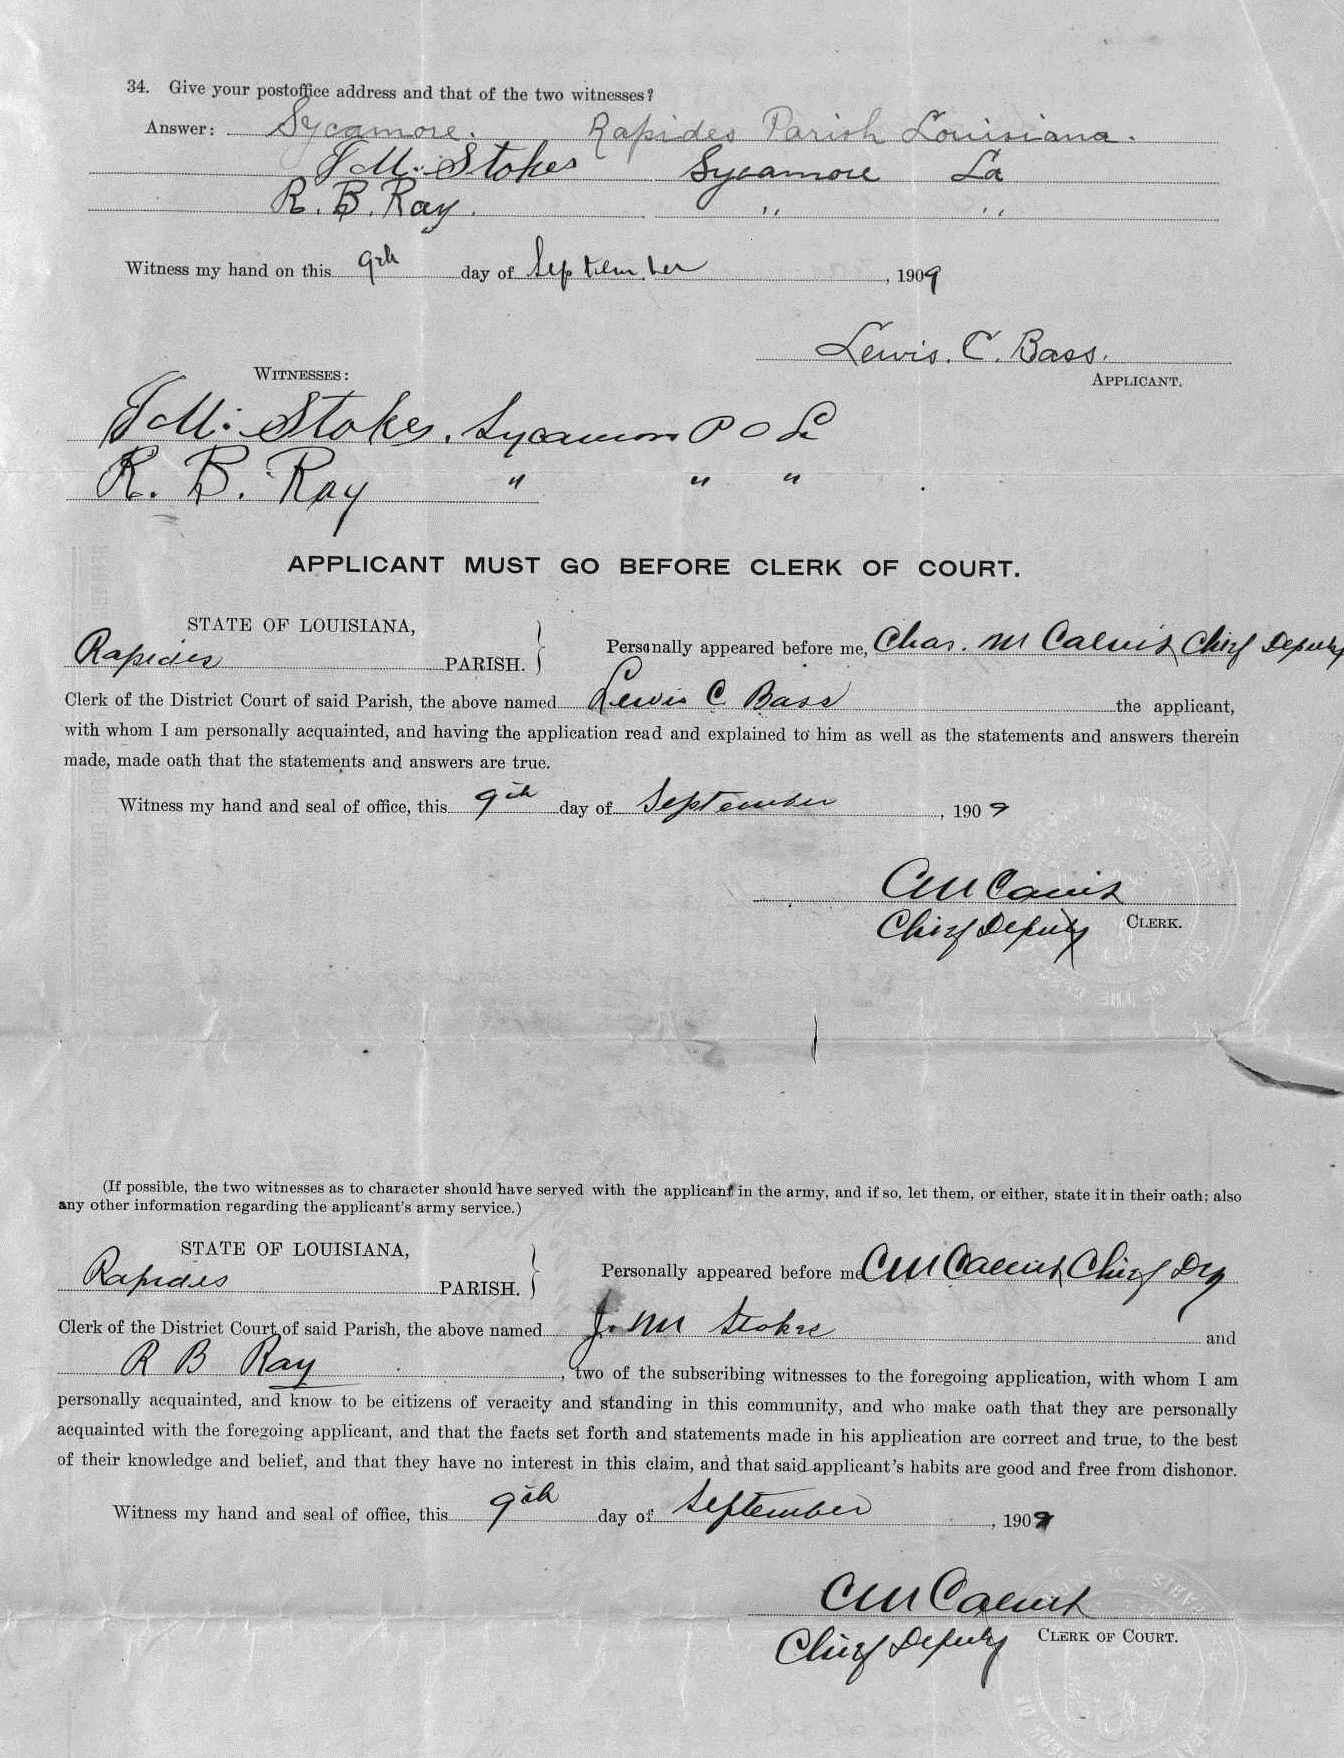 34. Give your postoffice address and that of the two witnesses?
Answer: Sycamore. Rapides Parish Louisiana.
J M. Stokes Sycamore La
R. B. Ray. " "
Witness my hand on this 9th day of September, 1909
Lewis. C. Bass.
WITNESSES: APPLICANT.
J M. Stokes. Sycamore P O La
R. B. Ray " " "
APPLICANT MUST GO BEFORE CLERK OF COURT.
STATE OF LOUISIANA,
Rapides PARISH. } Personally appeared before me, Chas. M Calvit Chief Deputy
Clerk of the District Court of said Parish, the above named Lewis C Bass the applicant,
with whom I am personally acquainted, and having the application read and explained to him as well as the statements and answers therein
made, made oath that the statements and answers are true.
Witness my hand and seal of office, this 9th day of September, 1909
C M Calvit
Chief Deputy CLERK.
(If possible, the two witnesses as to character should have served with the applicant in the army, and if so, let them, or either, state it in their oath; also
any other information regarding the applicant's army service.)
STATE OF LOUISIANA,
Rapides PARISH. } Personally appeared before me C M Calvit Chief Dpy
Clerk of the District Court of said Parish, the above named J. M Stokes and
R B Ray, two of the subscribing witnesses to the foregoing application, with whom I am
personally acquainted, and know to be citizens of veracity and standing in this community, and who make oath that they are personally
acquainted with the foregoing applicant, and that the facts set forth and statements made in his application are correct and true, to the best
of their knowledge and belief, and that they have no interest in this claim, and that said applicant's habits are good and free from dishonor.
Witness my hand and seal of office, this 9th day of September, 1909
C M Calvit
Chief Deputy CLERK OF COURT.